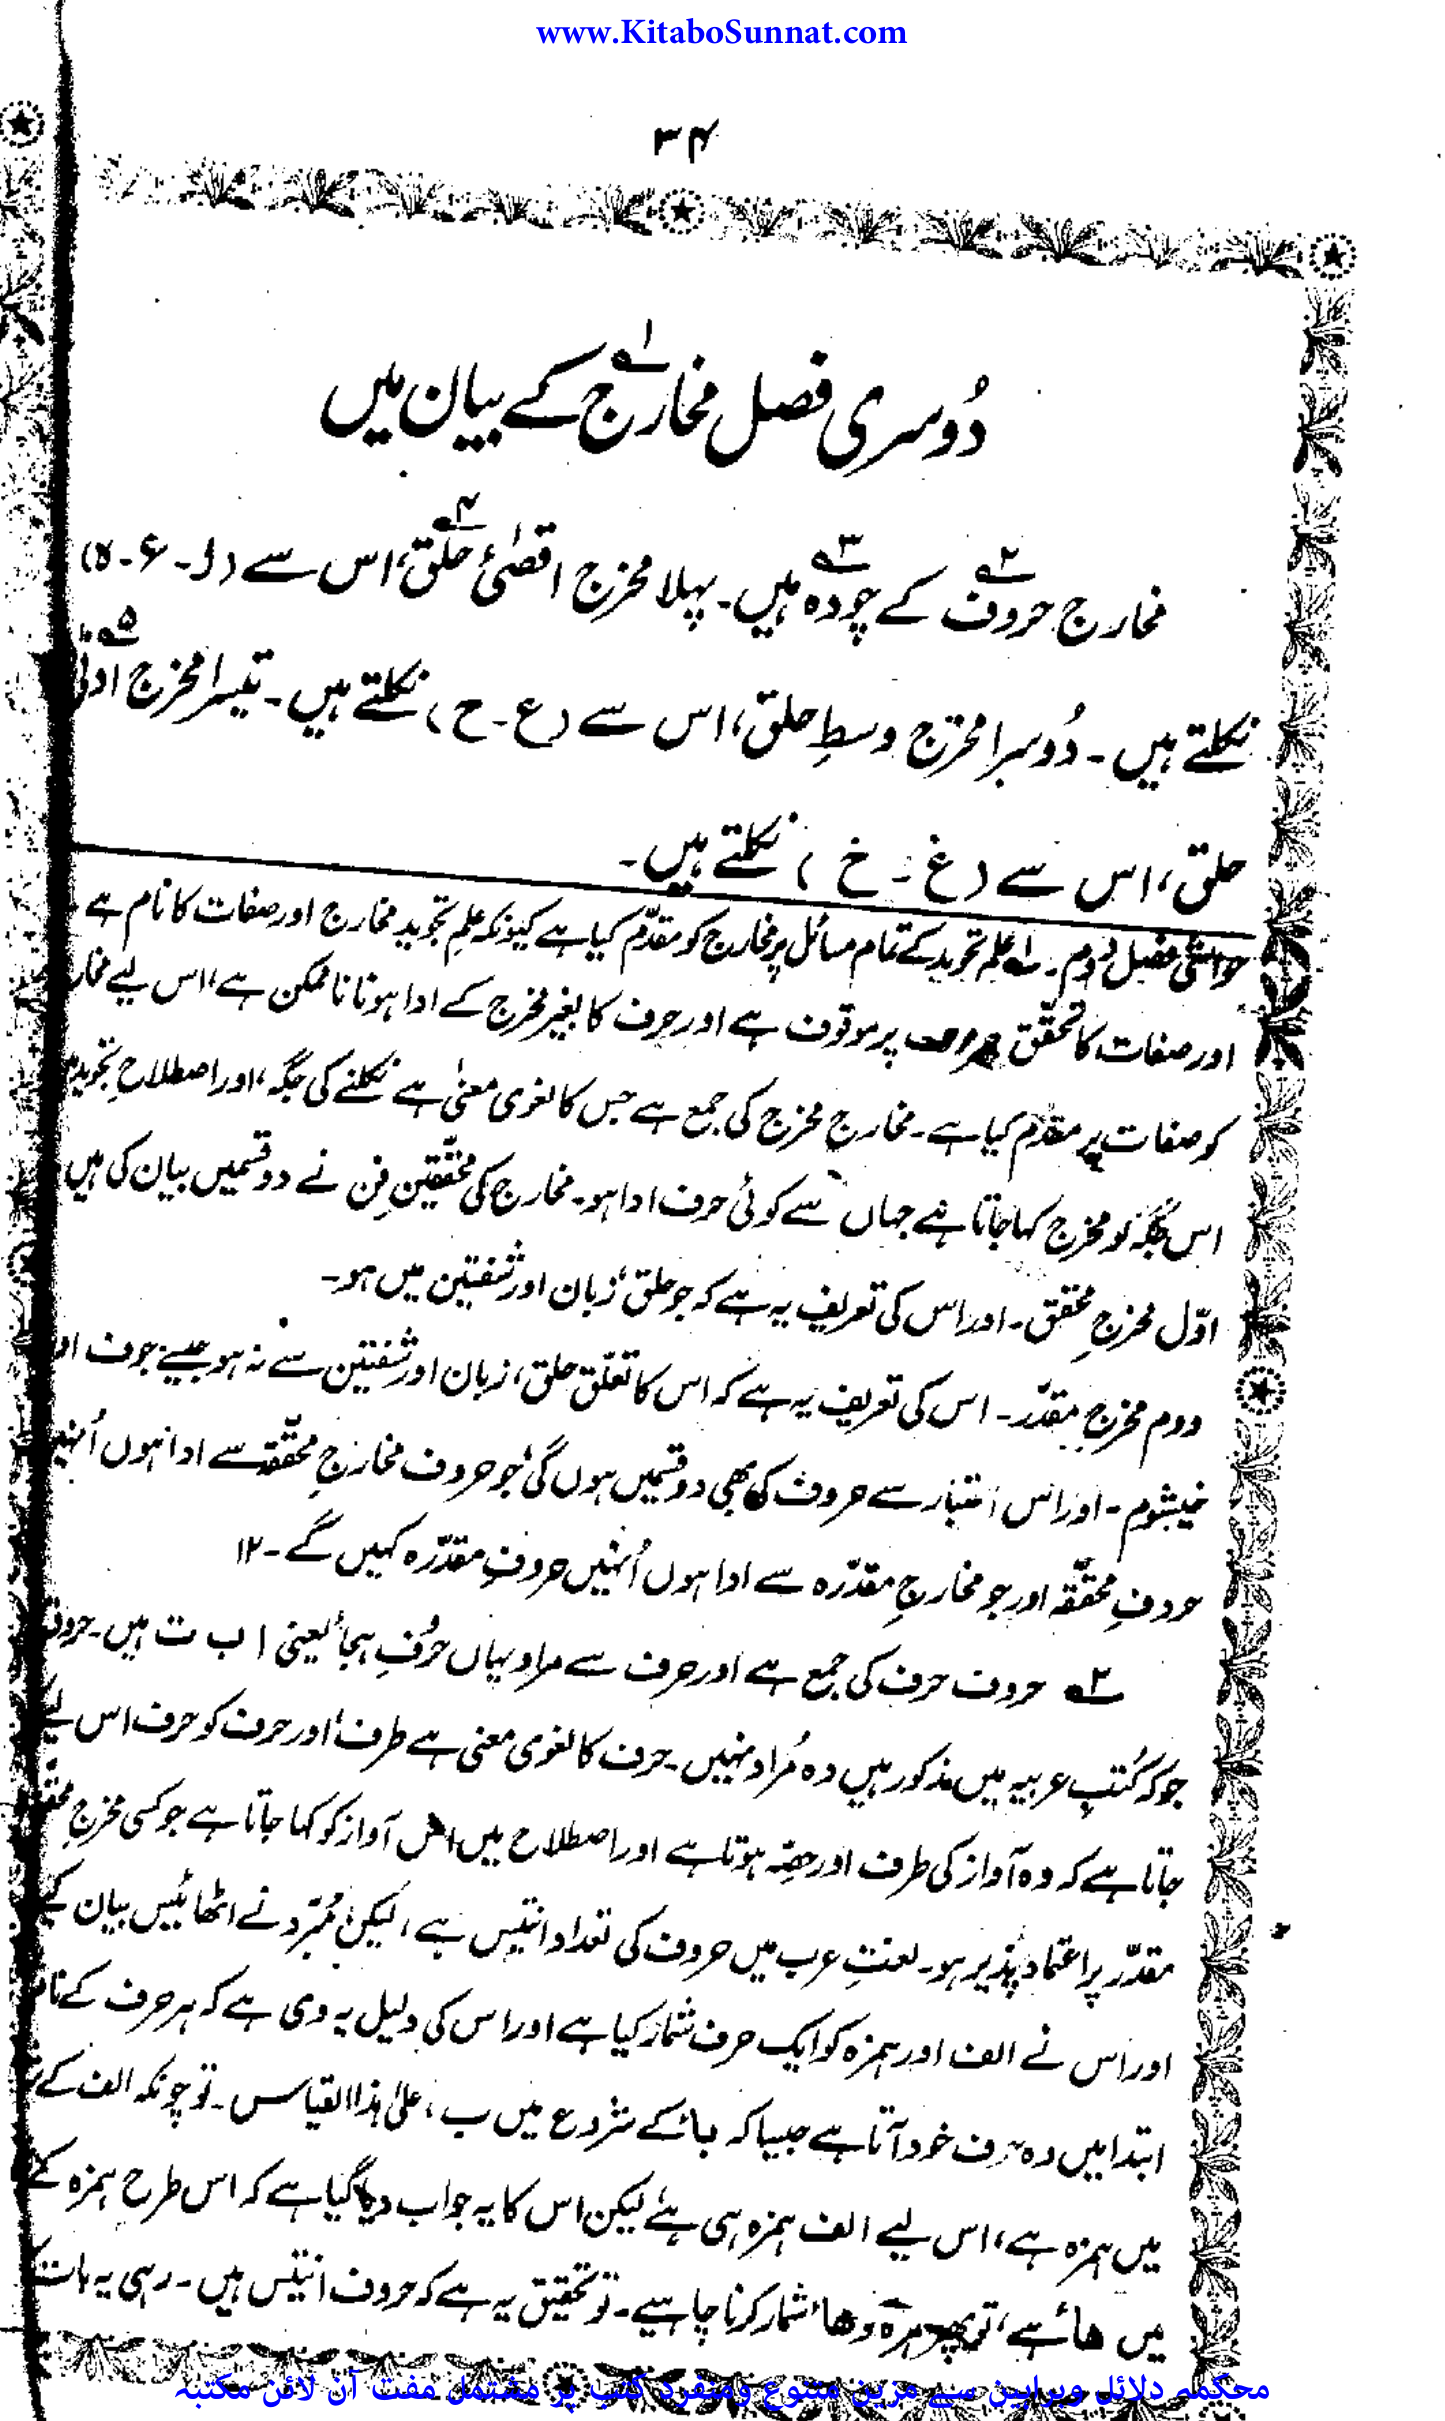 www.KitaboSunnat.com
۳۴
دُوسری فصل مخارج۱ کے بیان میں
مخارج حروف۲ کے چودہ۳ ہیں۔ پہلا مخرج اقصٰیٔ حلق۴، اس سے (ا۔ ء۔ ہ)
نکلتے ہیں۔ دُوسرا مخرج وسطِ حلق، اس سے (ع۔ ح) نکلتے ہیں۔ تیسرا مخرج ادنٰی۵
حلق، اس سے (غ۔ خ) نکلتے ہیں۔
حواشی فصل دوم۔ ۱ علم تجوید کے تمام مسائل پر مخارج کو مقدّم کیا ہے کیونکہ علمِ تجوید مخارج اور صفات کا نام ہے
اور صفات کا تحقّق پر موقوف ہے اور حرف کا بغیر مخرج کے ادا ہونا ناممکن ہے، اس لیے
کو صفات پر مقدم کیا ہے۔ مخارج مخرج کی جمع ہے جس کا لغوی معنیٰ ہے نکلنے کی جگہ، اور اصطلاحِ تجوید میں
اس جگہ کو مخرج کہا جاتا ہے جہاں سے کوئی حرف ادا ہو۔ مخارج کی محقّقینِ فن نے دو قسمیں بیان کی ہیں
اوّل مخرجِ محقق۔ اور اس کی تعریف یہ ہے کہ جو حلق، زبان اور شفتین میں ہو۔
دوم مخرجِ مقدّر۔ اس کی تعریف یہ ہے کہ اس کا تعلّق حلق، زبان اور شفتین سے نہ ہو جیسے جوف
خیشوم۔ اور اس اعتبار سے حروف کی بھی دو قسمیں ہوں گی، جو حروف مخارجِ محقّقہ سے ادا ہوں اُنہیں
حروفِ محقّقہ اور جو مخارجِ مقدّرہ سے ادا ہوں اُنہیں حروفِ مقدّرہ کہیں گے۔ ۱۲
۲ حروف حرف کی جمع ہے اور حرف سے مراد یہاں حُرفِ ہجأ یعنی ا ب ت ہیں۔
جو کہ کُتبِ عربیہ میں مذکور ہیں وہ مُراد نہیں۔ حرف کا لغوی معنی ہے طرف، اور حرف کو حرف اس لیے
جاتا ہے کہ وہ آواز کی طرف اور حصّہ ہوتا ہے اور اصطلاح میں اس آواز کو کہا جاتا ہے جو کسی مخرجِ
مقدّر پر اعتماد پذیر ہو۔ لغتِ عرب میں حروف کی تعداد انتیس ہے، لیکن مُبَرّد نے اٹھائیس بیان کیے
اور اس نے الف اور ہمزہ کو ایک حرف شمار کیا ہے اور اس کی دلیل یہ دی ہے کہ ہر حرف کے نام
ابتدا میں وہ حرف خود آتا ہے جیسا کہ باء کے شروع میں ب، علیٰ ہذا القیاس۔ تو چونکہ الف کے
میں ہمزہ ہے، اس لیے الف ہمزہ ہی ہے لیکن اس کا یہ جواب دیا گیا ہے کہ اس طرح ہمزہ کے
میں ھاء ہے، تو پھر ھاء شمار کرنا چاہیے۔ تو تحقیق یہ ہے کہ حروف انتیس ہیں۔ رہی یہ بات
محکمہ دلائل وبراہین سے مزین متنوع ومنفرد کتب پر مشتمل مفت آن لائن مکتبہ